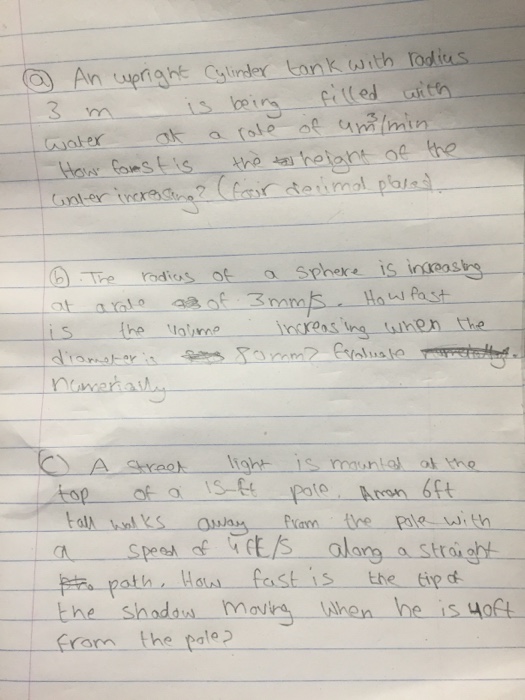 (a) An upright Cylinder tank with radius
3 m is being filled with
water at a rate of 4m³/min
How fast is the height of the
water increasing? (four decimal places).
(b). The radius of a sphere is increasing
at a rate of 3mm/s. How fast
is the volume increasing when the
diameter is 80mm? Evaluate
numerically
(c) A street light is mounted at the
top of a 15-ft pole. A man 6ft
tall walks away from the pole with
a speed of 4ft/s along a straight
path. How fast is the tip of
the shadow moving when he is 40ft
from the pole?